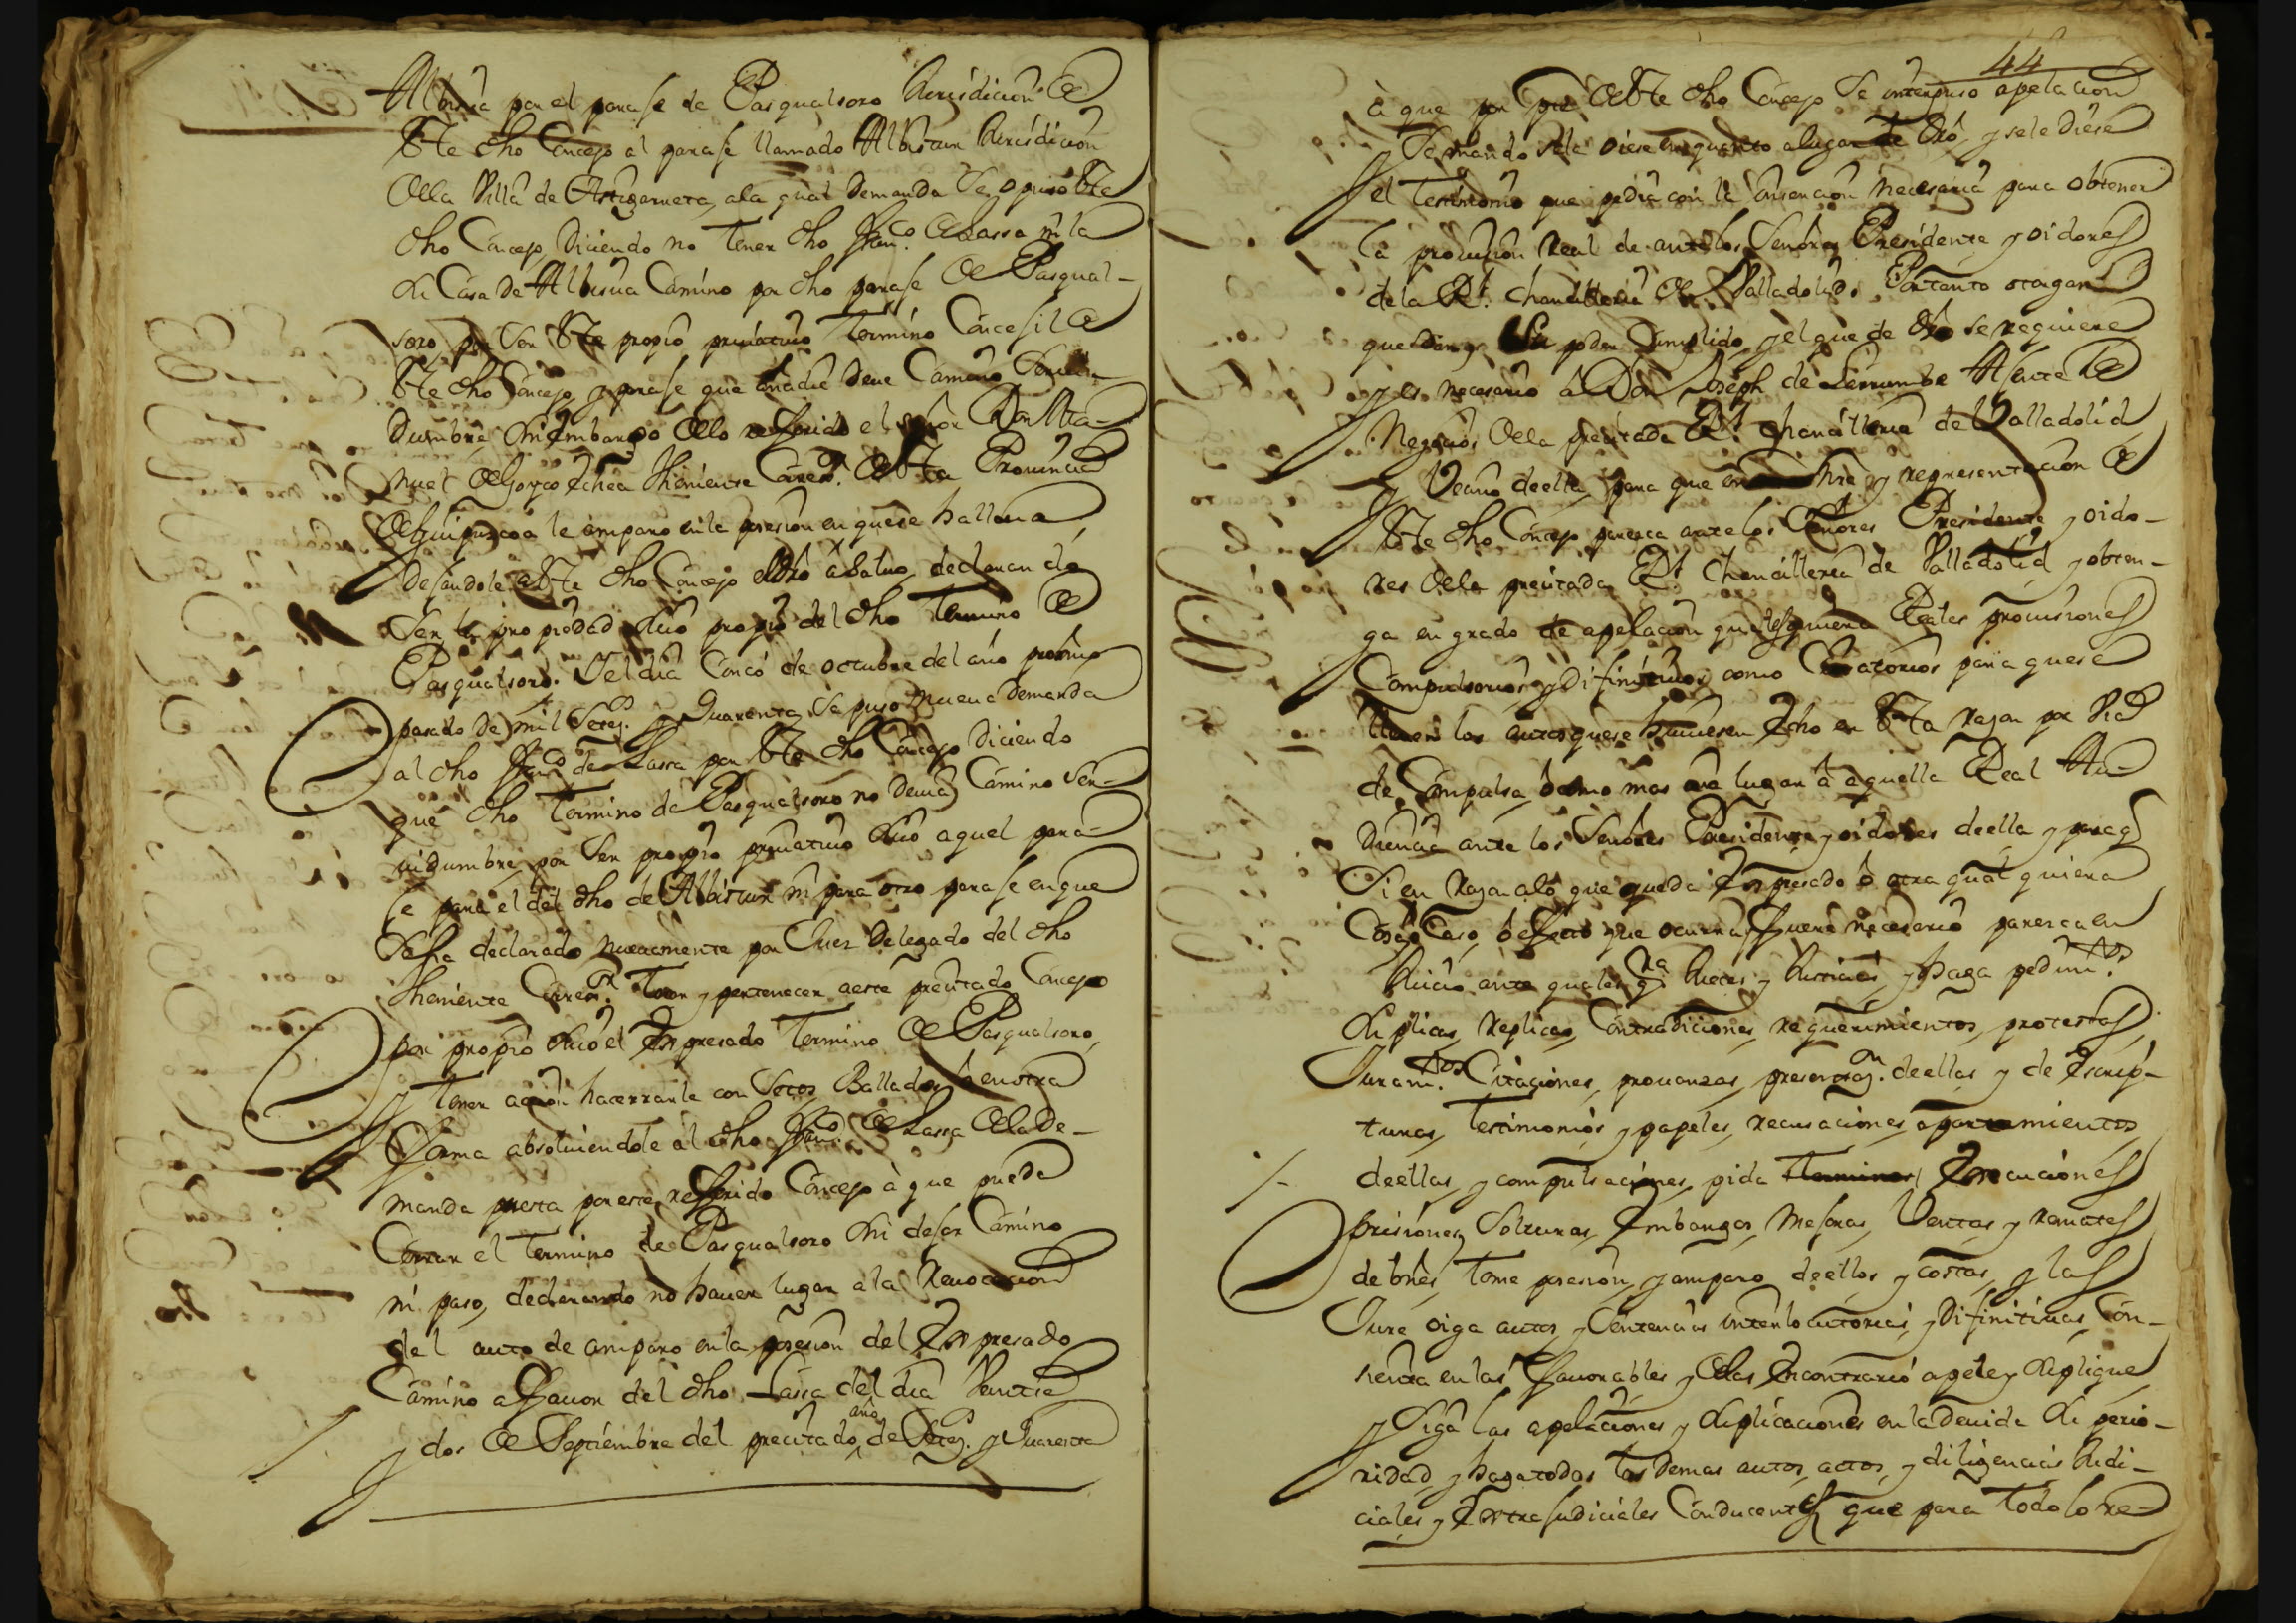 Albisua por el paraje de Pasqualsoro Jurisdicion de
este dho Concejo al paraje llamado Albistur Jurisdicion
dela Villa de Astigarreta, ala qual demanda se opuso este
dho Concejo diciendo no tener dho Franco. de Lassa ni la
su Casa de Albisua Camino por dho paraje de Pasqual-
soro por ser este propio priuatiuo termino Concejil de
este dho Concejo y paraje que anadie deue Camino Seruui-
dumbre, sin embargo delo referido el señor Don Ma-
nuel de Goycoechea theniente Corregr. de esta Prouincia
de Guipuzcoa le amparo enla posesion en quese hallaua
dejandole a este dho Concejo el dro à saluo, declarando
ser la propiedad suio propio del dho termino de
Pasqualsoro. Y el dia Cinco de octubre del año proximo
pasado de mil setez. y quarenta se puso nueua demanda
al dho Franco. de Lassa por este dho Concejo diciendo
que dho termino de Pasqualsoro no deuia Camino ser-
uidumbre por ser propio priuatiuo suio aquel para-
je para el del dho de Albistur ni para otro paraje en que
se ha declarado nueuamente por Juez Delegado del dho
theniente Corregr. tocar y pertenecer aeste precitado Concejo
por propio suio el Expresado termino de Pasqualsoro,
y tener acción hacerrarle con Setos, Ballados ò en otra
forma absoluiendole al dho Franco. de Lassa dela De-
manda puesta por este referido Concejo à que pueda
Cerrar el termino de Pasqualsoro sin dejar Camino
ni paso, declarando no hauer lugar ala Reuocacion
del auto de amparo enla posesion del Expresado
Camino a fauor del dho Lassa del dia Veintie
y dos de Septiembre del precitado año de Setez. y quarenta
44
à que por pte de este dho Concejo se interpuso apelacion
y se mando sele oiese en quanto alugar de dro, y sele diese
el testimonio que pedia con la insercion necesaria para obtener
la prouision Real de antelos Señores Presidente y oidores
dela Rl. Chancilleria de Valladolid. Portanto otorgan
que dan su poder Cumplido, y el que de dro se requiere
y es necesario à Don Joseph de Lerrumbe Ajente de
Negocios dela precitada Rl. Chancilleria de Valladolid
y Vecino deella, para que en nre y representacion de
este dho Concejo paresca ante los Señores Presidente y oido-
res dela precitada Rl Chancilleria de Valladolid y obten-
ga en grado de apelacion qualesquiera Reales prouisiones
Compulsorias, y Difinitiuas como Citatorios para quese
lleuen los autos quese huuiesen Echo en esta razon por Via
de Compulsa, ò como mas aia lugar à aquella Real Au-
diencia ante los Señores Presidente y oidores deella y para q
Si en razon alo que queda Expresado ò otra qual quiera
Cosa, Caso, ò efecto que ocurra, fuere necesario paresca en
Juicio ante quales qra Jueces y Justicias, y haga pedimtos.
suplicas, Replicas, Contradiciones, requerimientos, protestas,
Juramtos. Citaciones, prouanzas, presentazn. deellas y de Escrip-
turas, testimonios y papeles, recusaciones, apartamientos
deellas, y compulsaciones, pida terminos, Execuciones
prisiones, Solturas, Embargos, Mejoras, Ventas y remates
de bnes, tome posesion, y amparo deellos, y costas, y las
Jure oiga autos, y Sentencias interlocutorias, y Difinitiuas, Con-
sienta en las fauorables y delas Encontrario apele y suplique,
y Siga las apelaciones y suplicaciones en la deuida superio-
ridad, y haga todos los demas autos, actos, y diligencias Judi-
ciales, y Extrajudiciales Conducentes que para todo lo re